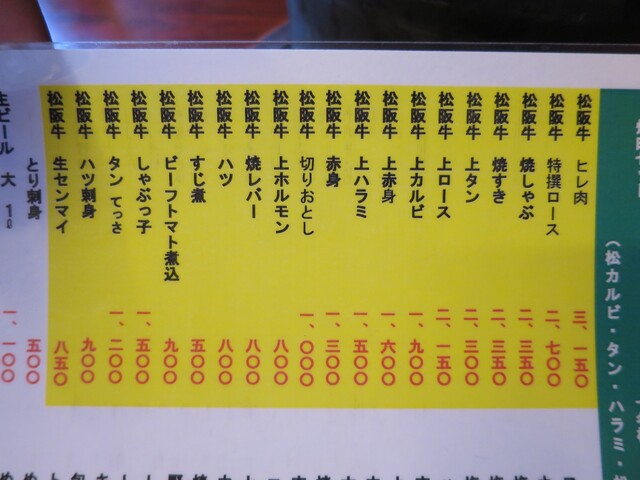 （松カルビ・タン・ハラミ・
松阪牛 ヒレ肉 三、一五〇
松阪牛 特撰ロース 二、七〇〇
松阪牛 焼しゃぶ 二、三五〇
松阪牛 焼すき 二、三五〇
松阪牛 上タン 二、三〇〇
松阪牛 上ロース 二、一五〇
松阪牛 上カルビ 一、九〇〇
松阪牛 上赤身 一、六〇〇
松阪牛 上ハラミ 一、五〇〇
松阪牛 赤身 一、三〇〇
松阪牛 切りおとし 一、〇〇〇
松阪牛 上ホルモン 八〇〇
松阪牛 焼レバー 八〇〇
松阪牛 ハツ 八〇〇
松阪牛 すじ煮 五〇〇
松阪牛 ビーフトマト煮込 九〇〇
松阪牛 しゃぶっ子 一、五〇〇
松阪牛 タン てっさ 一、二〇〇
松阪牛 ハツ刺身 九〇〇
松阪牛 生センマイ 八五〇
とり刺身 五〇〇
生ビール 大 1ℓ 一、一〇〇